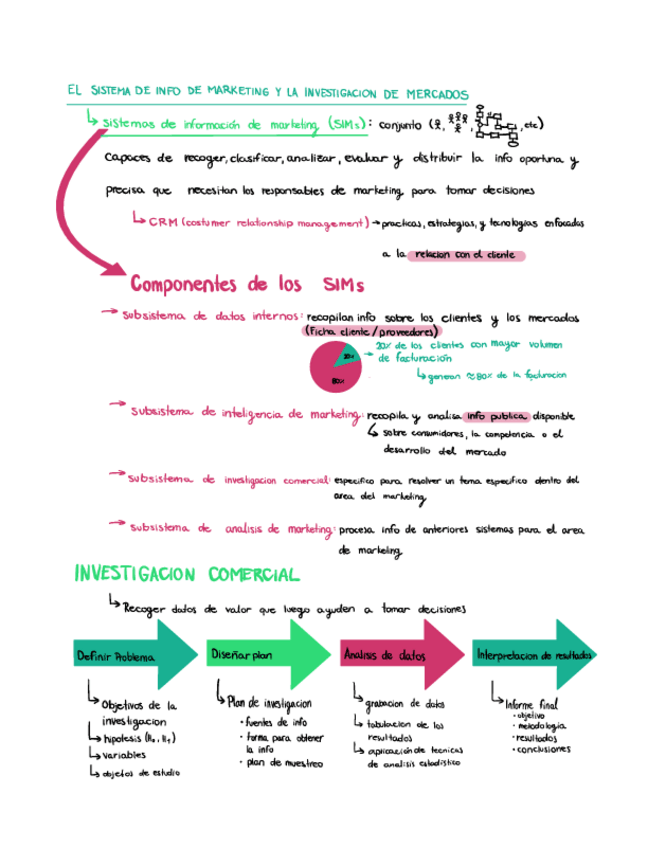 EL SISTEMA DE INFO DE MARKETING Y LA INVESTIGACION DE MERCADOS
↳ sistemas de información de marketing (SIMs): conjunto ( , , , etc)
capaces de recoger, clasificar, analizar, evaluar y distribuir la info oportuna y
precisa que necesitan los responsables de marketing para tomar decisiones
↳ CRM (costumer relationship management) → practicas, estrategias, y tecnologias enfocadas
a la relacion con el cliente
Componentes de los SIMs
→ subsistema de datos internos: recopilan info sobre los clientes y los mercados
(Ficha cliente/proveedores)
20% → 20% de los clientes con mayor volumen
de facturación
80% ↳ generan ≈ 80% de la facturacion
→ subsistema de inteligencia de marketing: recopila y analisa info publica disponible
↳ sobre consumidores, la competencia o el
desarrollo del mercado
→ subsistema de investigacion comercial: especifico para resolver un tema especifico dentro del
area del marketing
→ subsistema de analisis de marketing: procesa info de anteriores sistemas para el area
de marketing
INVESTIGACION COMERCIAL
↳ Recoger datos de valor que luego ayuden a tomar decisiones
Definir Problema
↳ Objetivos de la
investigacion
↳ hipotesis (H₀, H₁)
↳ variables
↳ objetos de estudio
Diseñar plan
↳ Plan de investigacion
• fuentes de info
• forma para obtener
la info
• plan de muestreo
Analisis de datos
↳ grabacion de datos
↳ tabulacion de los
resultados
↳ aplicación de tecnicas
de analisis estadistico
Interpretacion de resultados
↳ Informe final
• objetivo
• metodologia
• resultados
• conclusiones